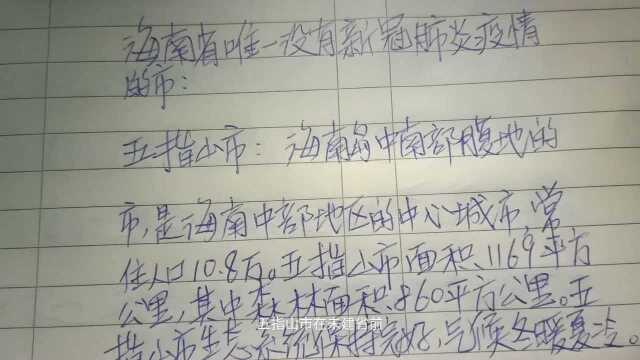 海南省唯一没有新冠肺炎疫情
的市:
五指山市:海南岛中南部腹地的
市,是海南中部地区的中心城市,常
住人口10.8万。五指山市面积1169平方
公里,其中森林面积860平方公里。五
指山市生态系统保持完好,气候冬暖夏凉。
五指山市在未建省前